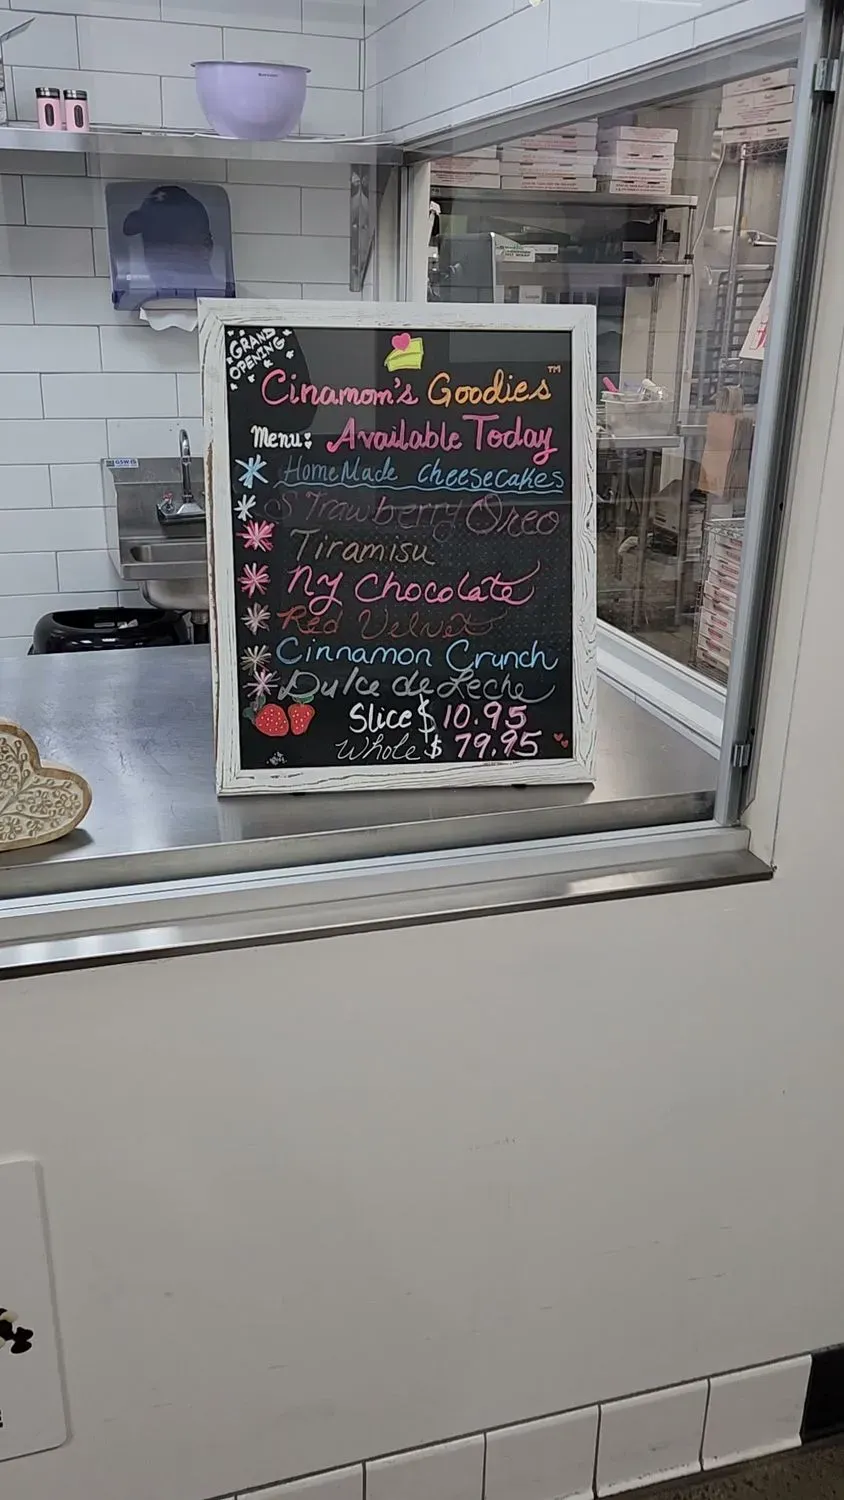 GRAND
OPENING
Cinamom's Goodies™
Menu: Available Today
HomeMade Cheesecakes
Strawberry Oreo
Tiramisu
NY Chocolate
Red Velvet
Cinnamon Crunch
Dulce de Leche
Slice $ 10.95
Whole $ 79.95